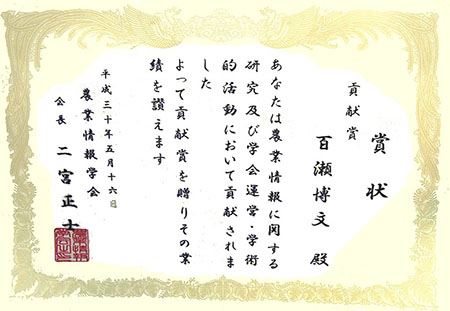 賞状
貢献賞
百瀬博文 殿
あなたは農業情報に関する
研究及び学会運営・学術
的活動において貢献されま
した
よって貢献賞を贈りその業
績を讃えます
平成三十年五月十六日
農業情報学会
会長 二宮正士